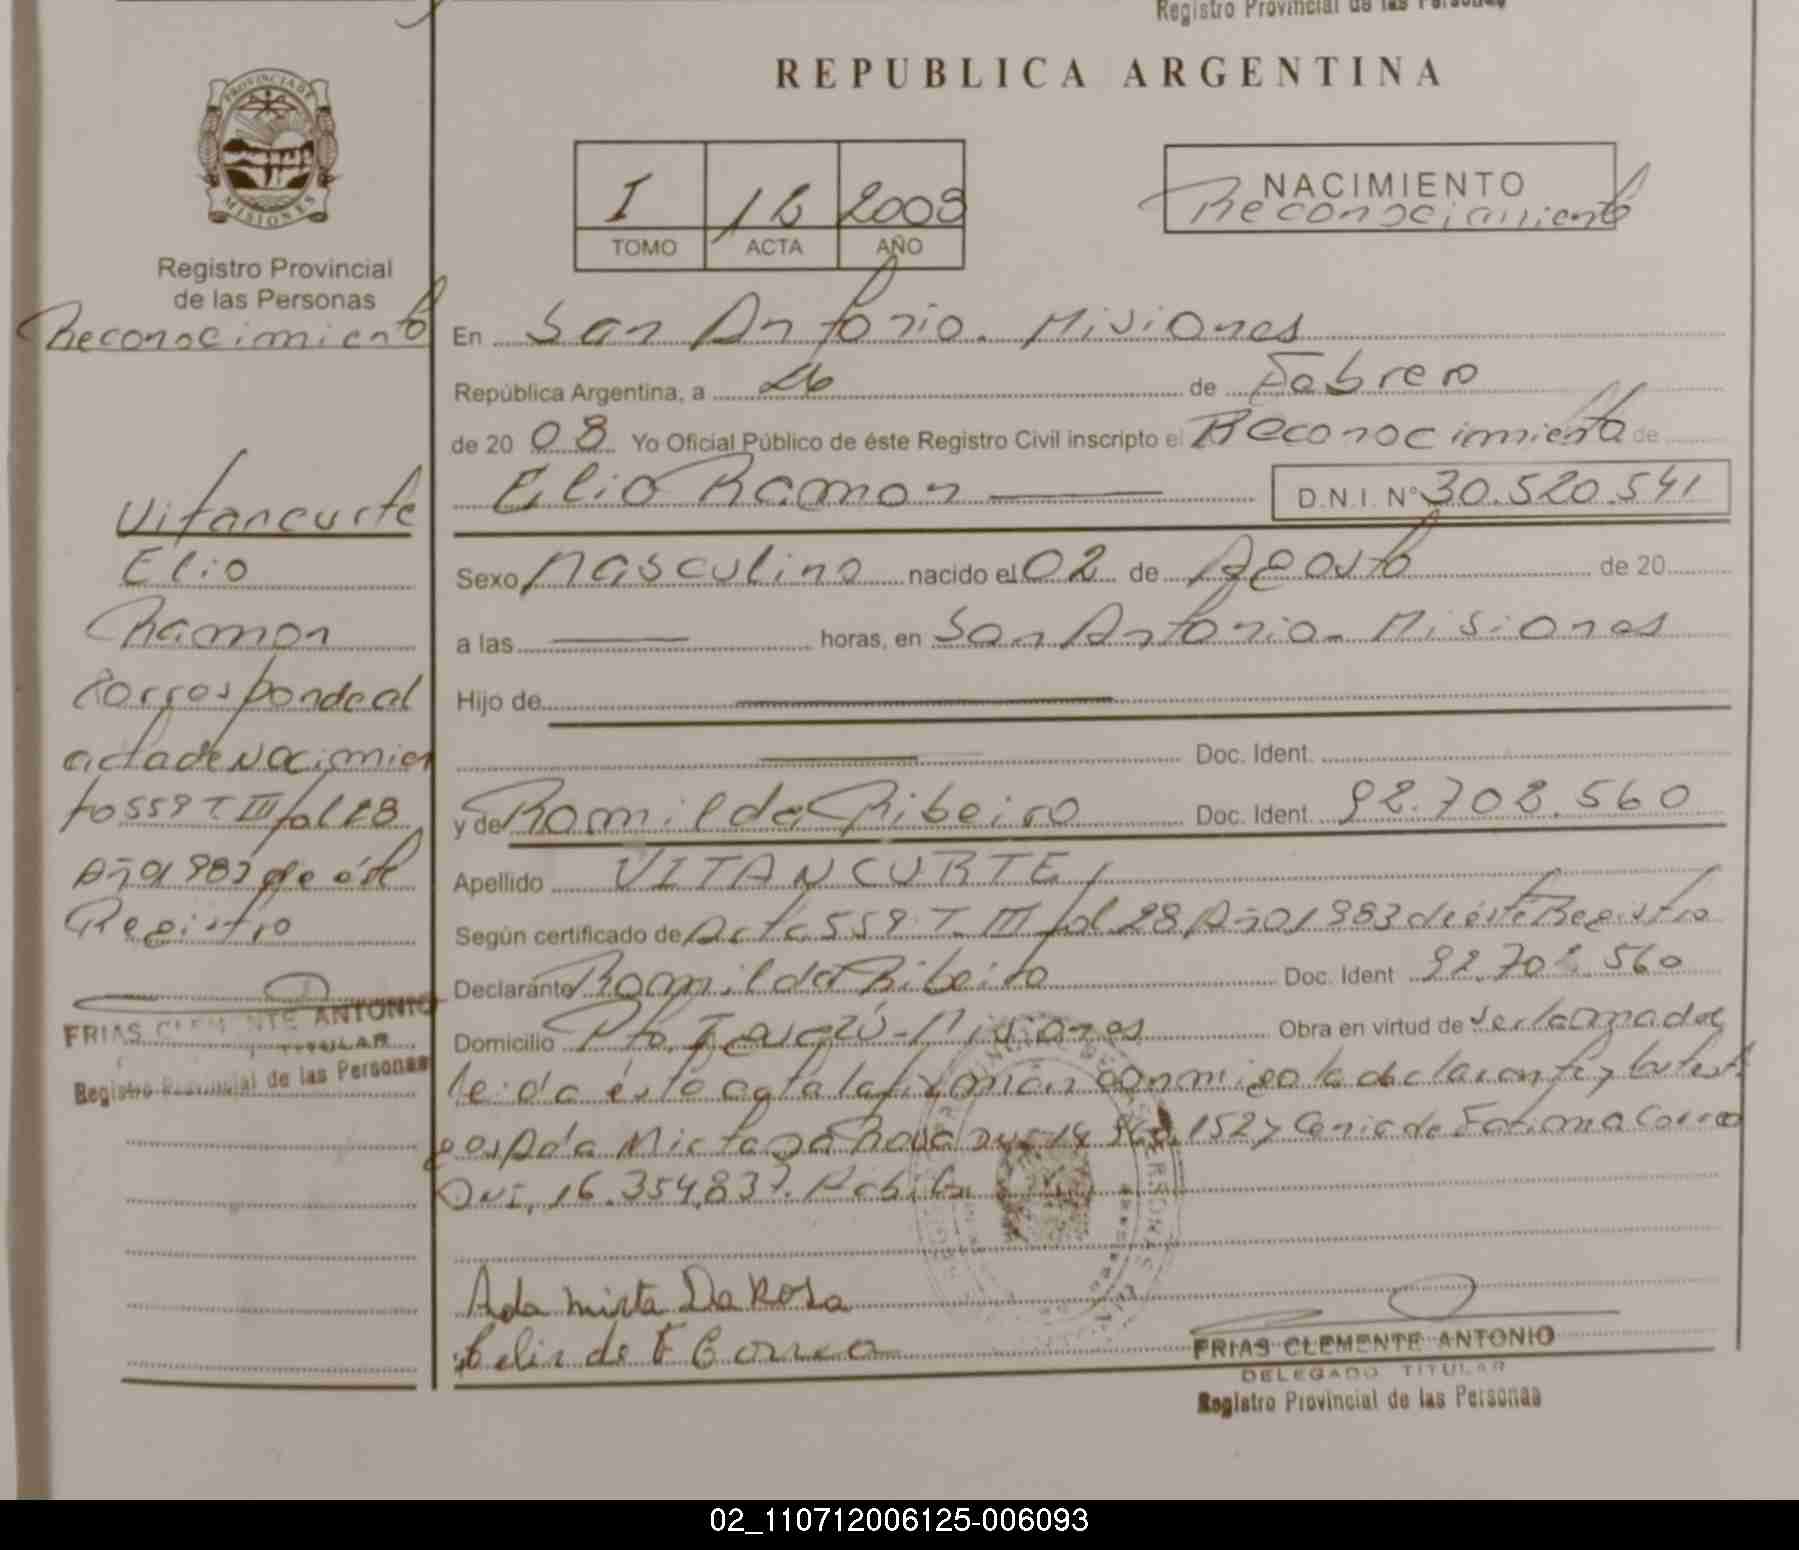 Registro Provincial de las Personas
PROVINCIA DE
MISIONES
Registro Provincial
de las Personas
Reconocimiento
Vitancurte
Elio
Ramon
Corresponde al
acta de Nacimien
to 559 T III fol 28
Año 1983 de éste
Registro
FRIAS CLEMENTE ANTONIO
TITULAR
Registro Provincial de las Personas
REPUBLICA ARGENTINA
I 16 2008
TOMO ACTA AÑO
NACIMIENTO
Reconocimiento
En San Antonio. Misiones
República Argentina, a 26 de Febrero
de 20 08 Yo Oficial Público de éste Registro Civil inscripto el Reconocimiento de
Elio Ramon D.N.I. N° 30.520.541
Sexo Masculino nacido el 02 de Agosto de 20
a las horas, en San Antonio - Misiones
Hijo de
Doc. Ident.
y de Romilda Ribeiro Doc. Ident. 92.702.560
Apellido VITANCURTE
Según certificado de Acta 559 T III fol 28 Año 1983 de éste Registro
Declarante Romilda Ribeiro Doc. Ident 92.702.560
Domicilio Pto. Iguazú - Misiones Obra en virtud de ser la madre
leida ésta acta la firman conmigo la declarante y los testi
gos Ada Mirta Da Rosa 152 y de Fatima Correa
DNI, 16.354.837.
Ada Mirta Da Rosa
de F Correa
FRIAS CLEMENTE ANTONIO
DELEGADO TITULAR
Registro Provincial de las Personas
02_110712006125-006093